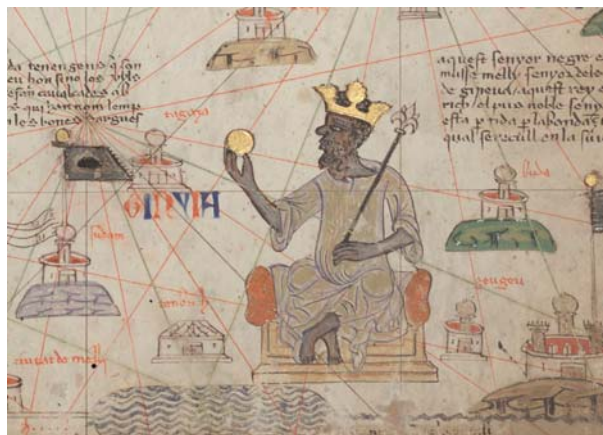 da tenen gens q̃ son
eu hon sino los uyls
e fan caualcades ab
s qui han nom lemp
n les bones dargues
aquest senyor negre e
musse melly senyor deles
de gineua aquest rey e
rich el pus noble seny
esta ptida p labondaz
qual se recull en la sui
tagaza
GINYIA
buda
sudam
geugeu
tenbuch
ciutat de melly